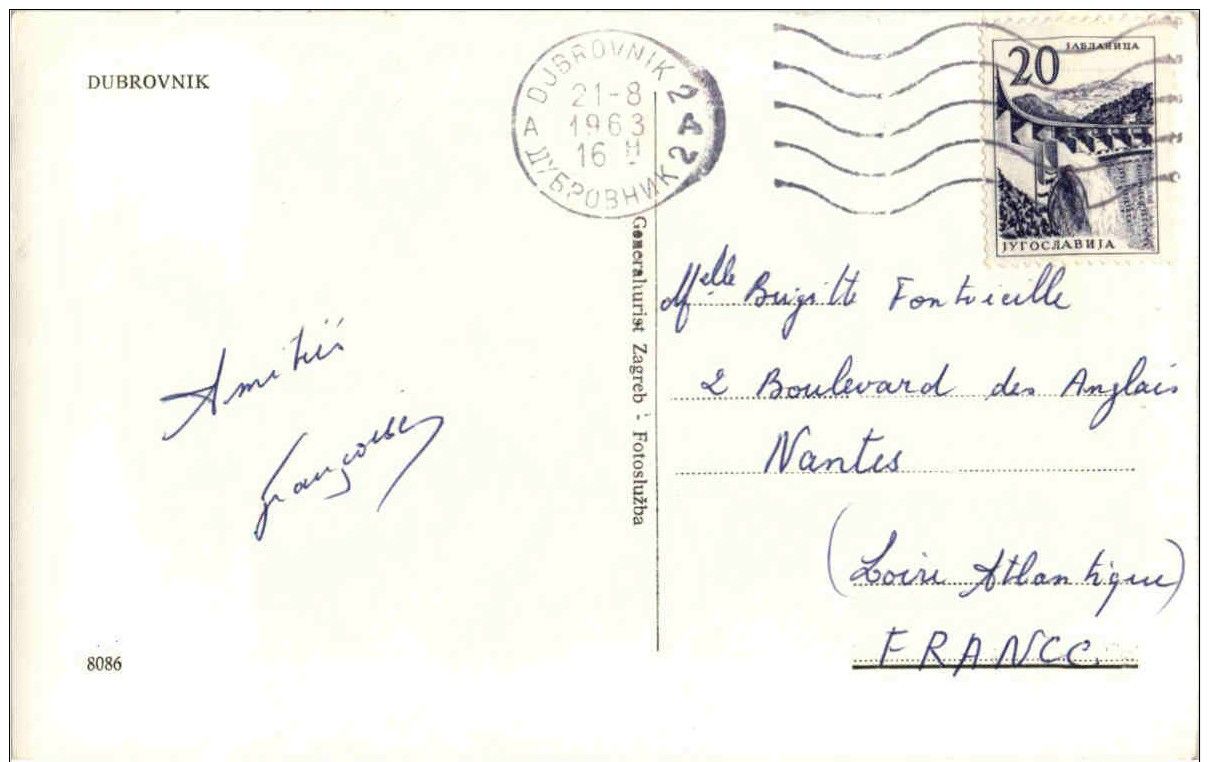 DUBROVNIK
DUBROVNIK 2
A 21-8 A
1963
16 H
ДУБРОВНИК 2
20
ЈАБЛАНИЦА
ЈУГОСЛАВИЈА
Generalturist Zagreb - Fotoslužba
Amitiés
Françoise
Melle Brigitte Fontvieille
2 Boulevard des Anglais
Nantes
(Loire Atlantique)
FRANCE
8086